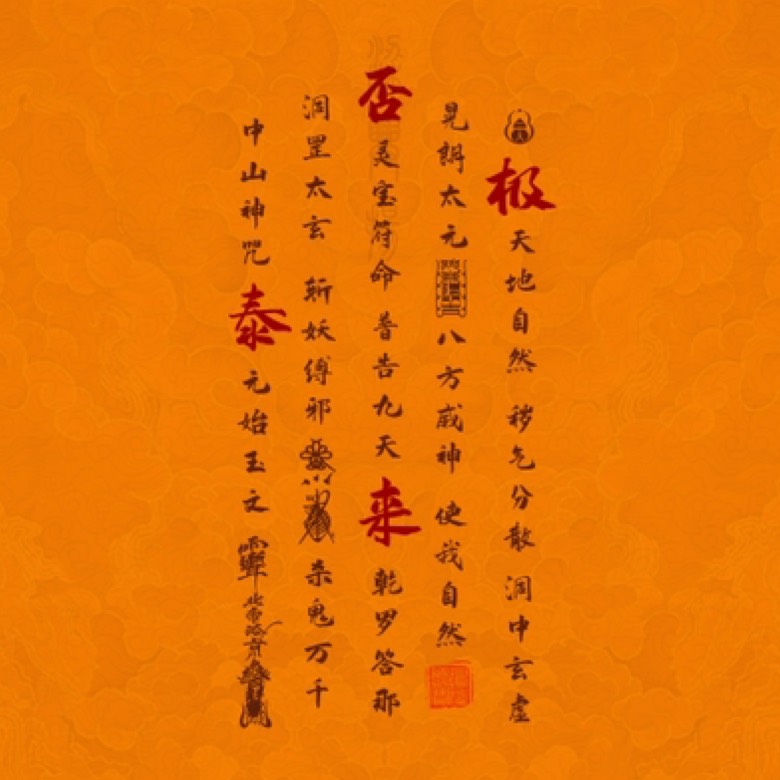 极 天地自然 秽炁分散 洞中玄虚
晃朗太元 八方威神 使我自然
否 灵宝符命 普告九天 来 乾罗答那
洞罡太玄 斩妖缚邪 杀鬼万千
中山神咒 泰 元始玉文